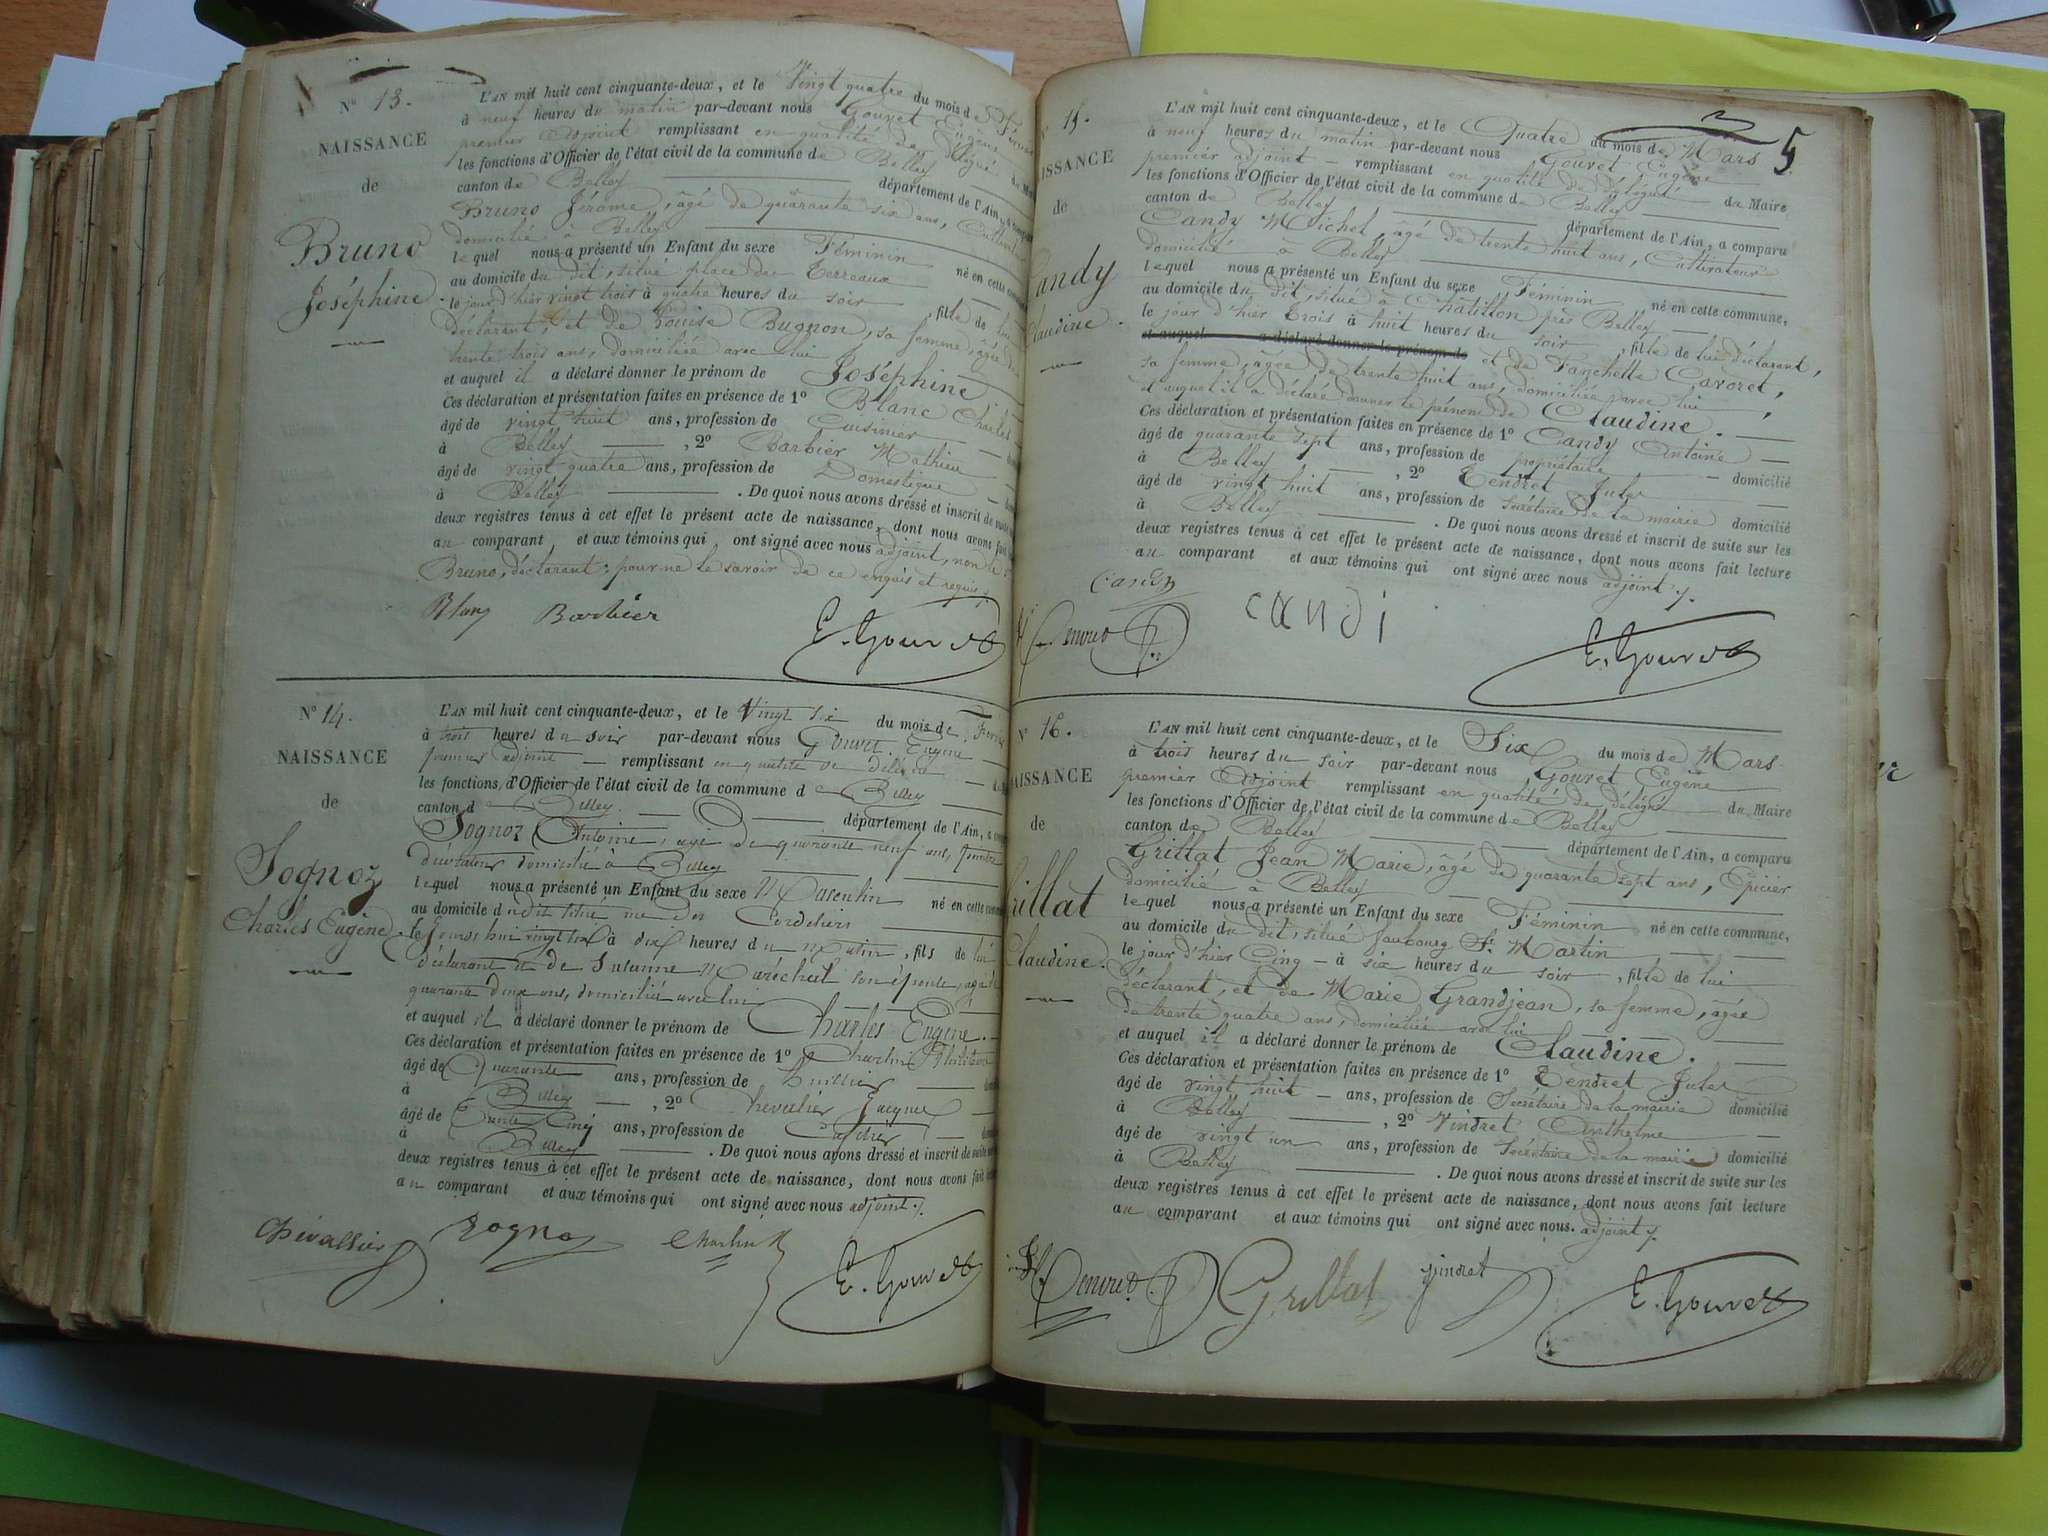 N° 13.
NAISSANCE
de
Bruno
Joséphine.
L'AN mil huit cent cinquante-deux, et le Vingt quatre du mois de
à neuf heures du matin par-devant nous Gouvet Eugène
premier adjoint remplissant en qualité de délégué
les fonctions d'Officier de l'état civil de la commune de Belley
canton de Belley département de l'Ain, a
Bruno Jérôme, âgé de quarante six ans,
domicilié à Belley
lequel nous a présenté un Enfant du sexe Féminin né en cette
au domicile du dit, situé place des Terreaux
le jour d'hier vingt trois à quatre heures du soir, fille de
déclarant, et de Louise Bugnon, sa femme, âgée de
trente trois ans, domiciliée avec lui
et auquel il a déclaré donner le prénom de Joséphine
Ces déclaration et présentation faites en présence de 1° Blanc Charles
âgé de vingt huit ans, profession de Cuisinier
à Belley, 2° Barbier Mathieu
âgé de vingt quatre ans, profession de Domestique
à Belley. De quoi nous avons dressé et inscrit de suite
deux registres tenus à cet effet le présent acte de naissance, dont nous avons fait
au comparant et aux témoins qui ont signé avec nous adjoint, non le
Bruno, déclarant; pour ne le savoir de ce enquis et requis
Blanc Barbier E. Gouvet
N° 14.
NAISSANCE
de
Sognoz
Charles Eugène.
L'AN mil huit cent cinquante-deux, et le Vingt six du mois de Février
à trois heures du soir par-devant nous Gouvet Eugène
premier adjoint remplissant en qualité de délégué
les fonctions d'Officier de l'état civil de la commune de Belley
canton de Belley département de l'Ain, a
Sognoz Antoine, âgé de quarante neuf ans, peintre
domicilié à Belley
lequel nous a présenté un Enfant du sexe Masculin né en cette
au domicile du dit situé rue des Cordeliers
le jourd'hui vingt six à dix heures du matin, fils de lui
déclarant et de Susanne Maréchal son épouse, âgée de
quarante deux ans, domiciliée avec lui
et auquel il a déclaré donner le prénom de Charles Eugène.
Ces déclaration et présentation faites en présence de 1° Charlin
âgé de Quarante ans, profession de huissier
à Belley, 2° Chevalier Jacques
âgé de Trente Cinq ans, profession de
à Belley. De quoi nous avons dressé et inscrit de suite
deux registres tenus à cet effet le présent acte de naissance, dont nous avons fait
au comparant et aux témoins qui ont signé avec nous adjoint
Chevallier Sogno Charlin E. Gouvet
5
15.
NAISSANCE
de
Candy
Claudine.
L'AN mil huit cent cinquante-deux, et le Quatre du mois de Mars
à neuf heures du matin par-devant nous Gouvet Eugène
premier adjoint remplissant en qualité de délégué du Maire
les fonctions d'Officier de l'état civil de la commune de Belley
canton de Belley département de l'Ain, a comparu
Candy Michel, âgé de trente huit ans, Cultivateur
domicilié à Belley
lequel nous a présenté un Enfant du sexe Féminin né en cette commune,
au domicile du dit, situé à Chatillon près Belley
le jour d'hier trois à huit heures du soir, fille de lui déclarant,
et auquel a déclaré donner le prénom de et de Fanchette Cavoret,
sa femme, âgée de trente huit ans, domiciliée avec lui,
et auquel il a déclaré donner le prénom de Claudine.
Ces déclaration et présentation faites en présence de 1° Candy Antoine
âgé de quarante sept ans, profession de propriétaire domicilié
à Belley, 2° Tendret Jules
âgé de vingt huit ans, profession de Secrétaire de la mairie domicilié
à Belley. De quoi nous avons dressé et inscrit de suite sur les
deux registres tenus à cet effet le présent acte de naissance, dont nous avons fait lecture
au comparant et aux témoins qui ont signé avec nous adjoint
Candy candi
Tendret E. Gouvet
N° 16.
NAISSANCE
de
Grillat
Claudine.
L'AN mil huit cent cinquante-deux, et le Six du mois de Mars
à trois heures du soir par-devant nous Gouvet Eugène
premier adjoint remplissant en qualité de délégué du Maire
les fonctions d'Officier de l'état civil de la commune de Belley
canton de Belley département de l'Ain, a comparu
Grillat Jean Marie, âgé de quarante sept ans, Epicier
domicilié à Belley
lequel nous a présenté un Enfant du sexe Féminin né en cette commune,
au domicile du dit, situé faubourg St. Martin
le jour d'hier Cinq à six heures du soir, fille de lui
déclarant, et de Marie Grandjean, sa femme, âgée
de trente quatre ans, domiciliée avec lui
et auquel il a déclaré donner le prénom de Claudine.
Ces déclaration et présentation faites en présence de 1° Tendret Jules
âgé de vingt huit ans, profession de Secrétaire de la mairie domicilié
à Belley, 2° Vindret Anthelme
âgé de vingt un ans, profession de Secrétaire de la mairie domicilié
à Belley. De quoi nous avons dressé et inscrit de suite sur les
deux registres tenus à cet effet le présent acte de naissance, dont nous avons fait lecture
au comparant et aux témoins qui ont signé avec nous. adjoint
Tendret Grillat vindret E. Gouvet